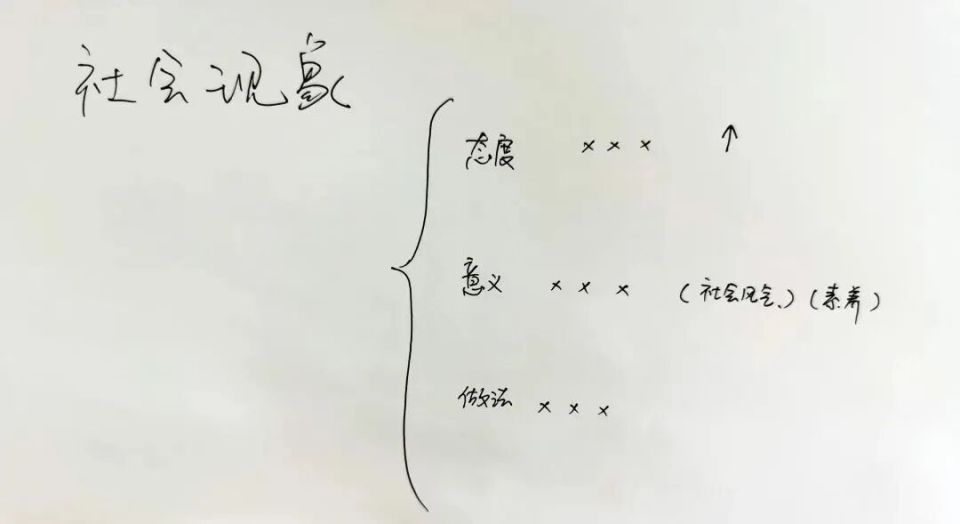 社会现象
态度 × × × ↑
意义 × × × (社会风气、)(素养)
做法 × × ×